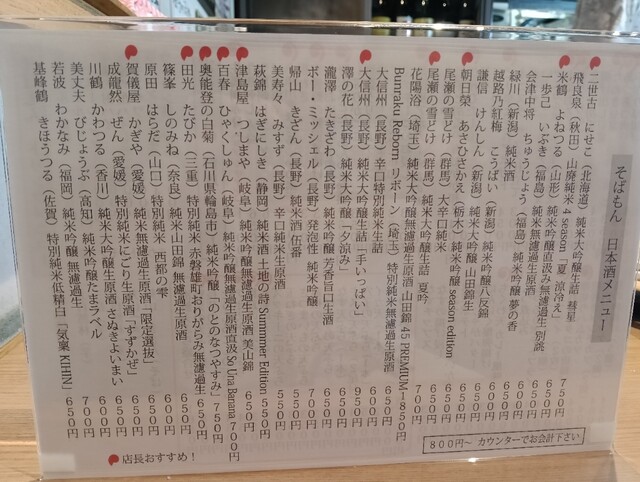 そばもん 日本酒メニュー
二世古 にせこ（北海道）純米大吟醸生詰 彗星
飛良泉（秋田）山廃純米 4 season「夏 涼冷え」 750円
米鶴 よねつる（山形）純米吟醸直汲み無濾過生 別誂
一歩己 いぶき（福島）純米無濾過生原酒
会津中将 ちゅうじょう（福島）純米吟醸 夢の香
緑川（新潟）純米酒 600円
越路乃紅梅 こうばい（新潟）純米吟醸八反錦
謙信 けんしん（新潟）純米大吟醸 山田錦生
朝日榮 あさひさかえ（栃木）純米吟醸 season edition
尾瀬の雪どけ（群馬）大辛口純米
尾瀬の雪どけ（群馬）純米大吟醸生詰 夏吟
花陽浴（埼玉）純米大吟醸生原酒 山田錦 45 PREMIUM 850円
Bunraku Reborn リボーン（埼玉）特別純米無濾過生原酒
大信州（長野）辛口特別純米生詰 600円
大信州（長野）純米大吟醸生詰「手いっぱい」 950円
澤の花（長野）純米大吟醸「夕涼み」
瀧澤 たきざわ（長野）純米吟醸 芳香旨口生酒
ボー・ミッシェル（長野）発泡性 純米吟醸 700円
帰山 きざん（長野）純米酒 伍番
美寿々 みすず（長野）辛口純米生原酒 550円
萩錦 はぎにしき（静岡）純米酒 土地の詩 Summmer Edition 550円
津島屋 つしまや（岐阜）純米吟醸無濾過生原酒 美山錦 650円
百春 ひゃくしゅん（岐阜）純米吟醸無濾過生原酒直汲 So Una Banana 700円
奥能登の白菊（石川県輪島市）純米吟醸「のとのなつやすみ」 750円
田光 たびか（三重）特別純米 赤磐雄町おりがらみ無濾過生 650円
篠峯 しのみね（奈良）純米山田錦無濾過生原酒 650円
原田 はらだ（山口）特別純米 西都の雫 650円
賀儀屋 かぎや（愛媛）純米無濾過生原酒「限定選抜」 650円
成龍然 ぜん（愛媛）特別純米にごり生原酒「すずかぜ」 650円
川鶴 かわつる（香川）純米大吟醸生原酒 さぬきよいまい 650円
美丈夫 びじょうぶ（高知）純米吟醸たまラベル 700円
若波 わかなみ（福岡）純米吟醸 無濾過生 600円
基峰鶴 きほうつる（佐賀）特別純米低精白「気樂 KIHIN」 650円
800円〜 カウンターでお会計下さい
店長おすすめ！